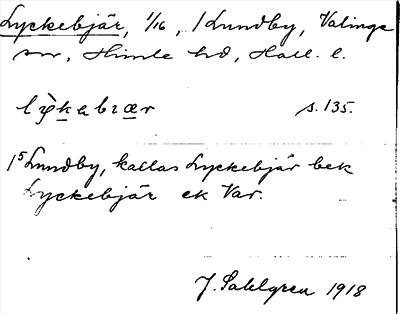 Lyckebjär, 1/16, 1 Lundby, Valinge
sn, Himle hd, Hall. l.
s. 135.
1⁵ Lundby, kallas Lyckebjär bek
Lyckebjär ek Var.
J. Sahlgren 1918